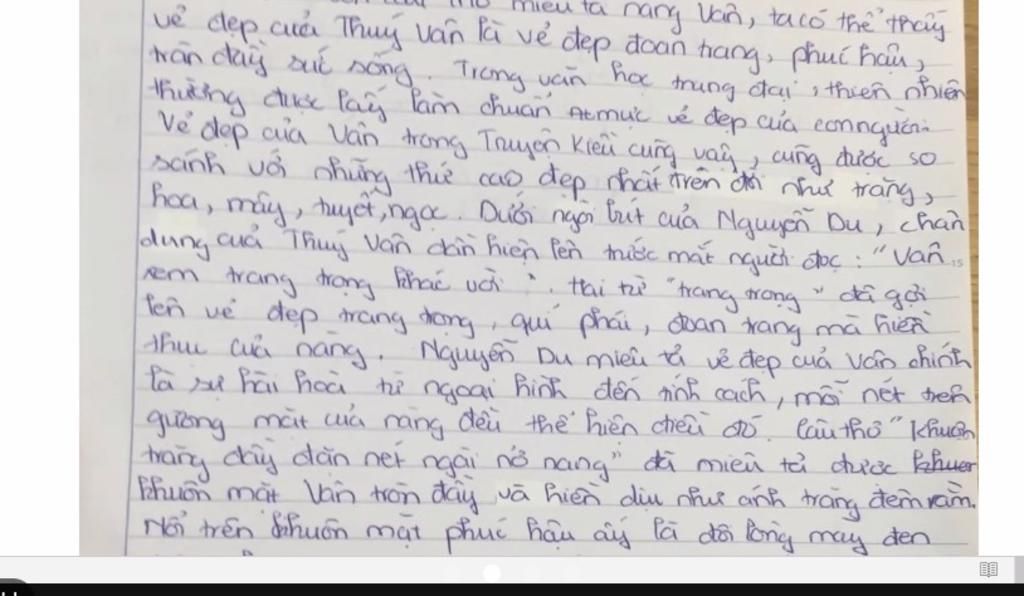 miêu tả nàng Vân, ta có thể thấy
vẻ đẹp của Thuý Vân là vẻ đẹp đoan trang, phúc hậu,
tràn đầy sức sống. Trong văn học trung đại, thiên nhiên
thường được lấy làm chuẩn mực vẻ đẹp của con người.
Vẻ đẹp của Vân trong Truyện Kiều cũng vậy, cũng được so
sánh với những thứ cao đẹp nhất trên đời như trăng,
hoa, mây, tuyết, ngọc. Dưới ngòi bút của Nguyễn Du, chân
dung của Thuý Vân dần hiện lên trước mắt người đọc: "Vân
xem trang trọng khác vời". Hai từ "trang trọng" đã gợi
lên vẻ đẹp trang trọng, quí phái, đoan trang mà hiền
thuc của nàng. Nguyễn Du miêu tả vẻ đẹp của Vân chính
là sự hài hoà từ ngoại hình đến tính cách, mỗi nét trên
gương mặt của nàng đều thể hiện điều đó. Câu thơ "Khuôn
trăng đầy đặn nét ngài nở nang" đã miêu tả được khuer
khuôn mặt Vân tròn đầy và hiền dịu như ánh trăng đêm rằm.
Nổi trên khuôn mặt phúc hậu ấy là đôi lông mày đen